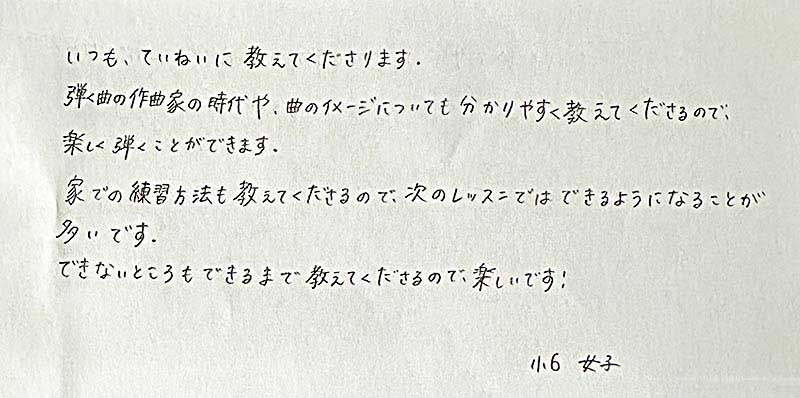 いつも、ていねいに教えてくださります.
弾く曲の作曲家の時代や、曲のイメージについても分かりやすく教えてくださるので、
楽しく弾くことができます.
家での練習方法も教えてくださるので、次のレッスンではできるようになることが
多いです.
できないところもできるまで教えてくださるので、楽しいです!
小6 女子